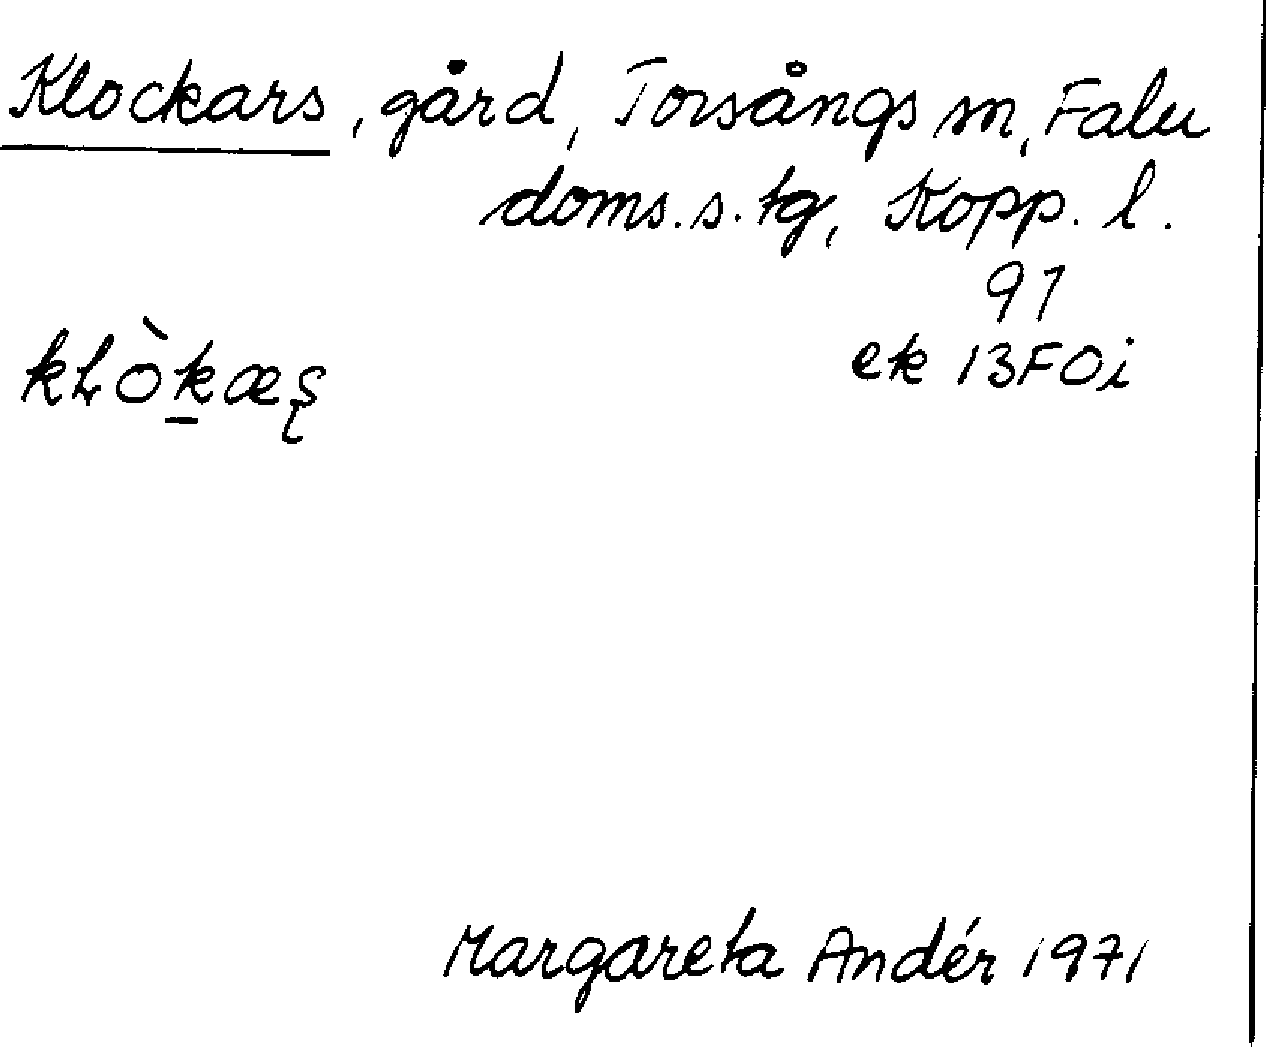 Klockars, gård, Torsångs sn, Falu
doms.s.tg, Kopp. l.
91
ek 13F0i
kłòk̲æş
Margareta Andér 1971